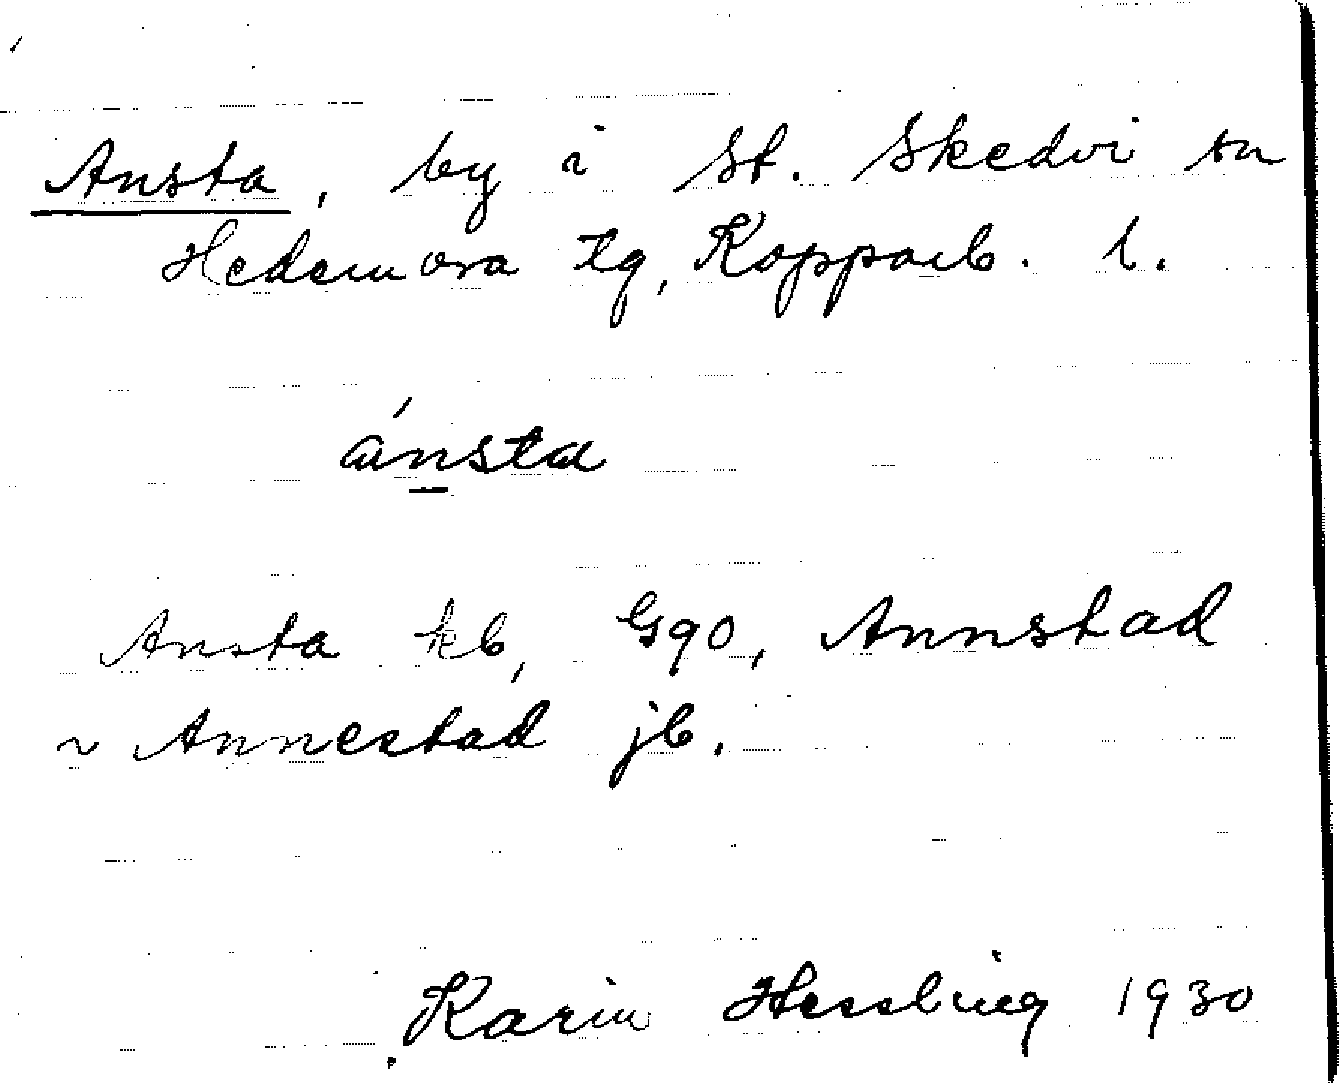 Ansta, by i St. Skedvi sn
Hedemora tg, Kopparb. l.
ánsta
Ansta kb, G90, Annstad
~ Annestad jb.
Karin Hessling 1930